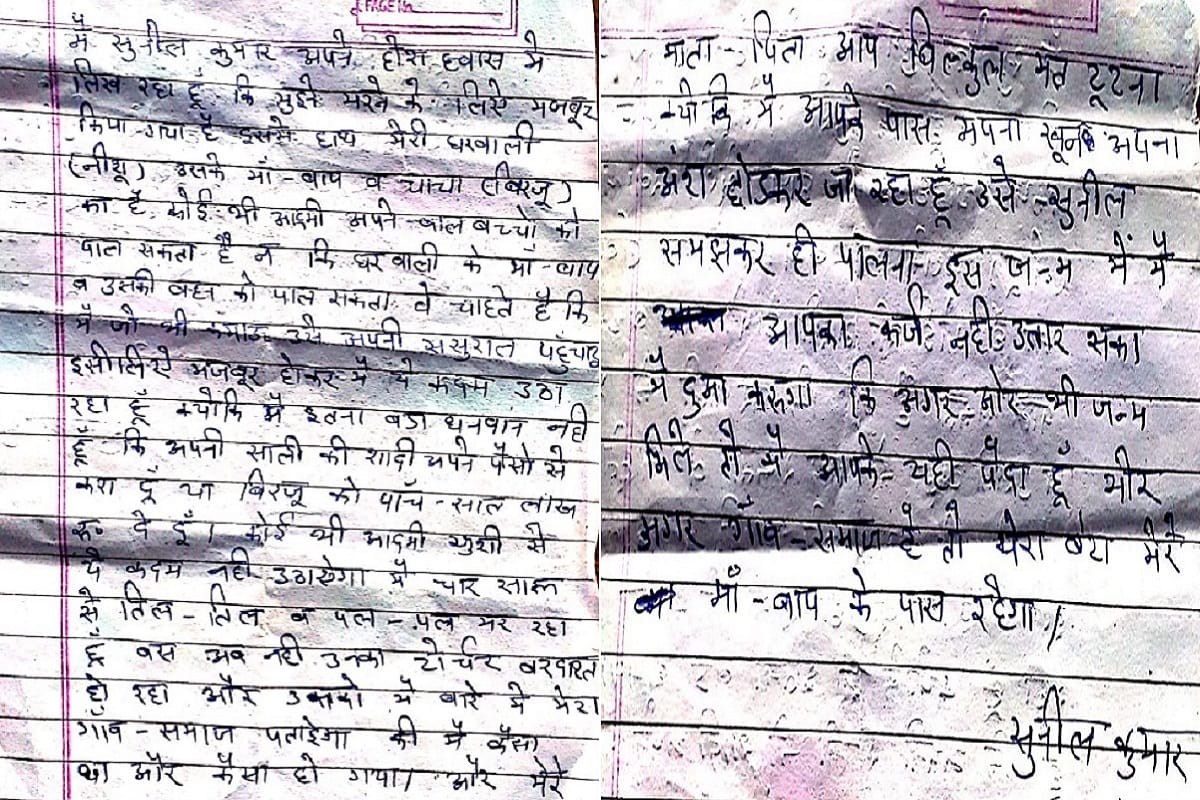 PAGE No
मैं सुनील कुमार अपने होश हवास मे
लिख रहा हूँ कि मुझे मरने के लिऐ मजबूर
किया गया है इसमे हाथ मेरी घरवाली
(नीशू) उसके माँ-बाप व चाचा (बिरजू)
का है कोई भी आदमी अपने बाल बच्चो को
पाल सकता है न कि घरवाली के माँ-बाप
व उसकी बहन को पाल सकता वे चाहते है कि
मैं जो भी कमाऊ उसे अपनी ससुराल पहुँचाऊ
इसीलिऐ मजबूर होकर मै ये कदम उठा
रहा हूँ क्योकि मैं इतना बडा धनवान नही
हूँ कि अपनी साली की शादी अपने पैसो से
करा दूँ या बिरजू को पाँच-सात लाख
रू० दे दूँ। कोई भी आदमी खुशी से
ये कदम नही उठाऐगा मैं चार साल
से तिल-तिल व पल-पल मर रहा
हूँ बस अब नही उनका टोर्चर बरदास्त
हो रहा और मै बारे मे मेरा
गाँव-समाज बताऐगा की मै कैसा
था और कैसा हो गया। और मेरे
माता-पिता आप बिल्कुल मत टूटना
क्योकि मै आपके पास अपना खून अपना
अंश छोडकर जा रहा हूँ उसे सुनील
समझकर ही पालना इस जन्म में मै
आपका कर्ज नही उतार सका
मै दुआ करूगा कि अगर ओर भी जन्म
मिले तो मै आपके यही पैदा हूँ और
अगर गाँव-समाज है तो मेरा बेटा मेरे
माँ-बाप के पास रहेगा।
सुनील कुमार